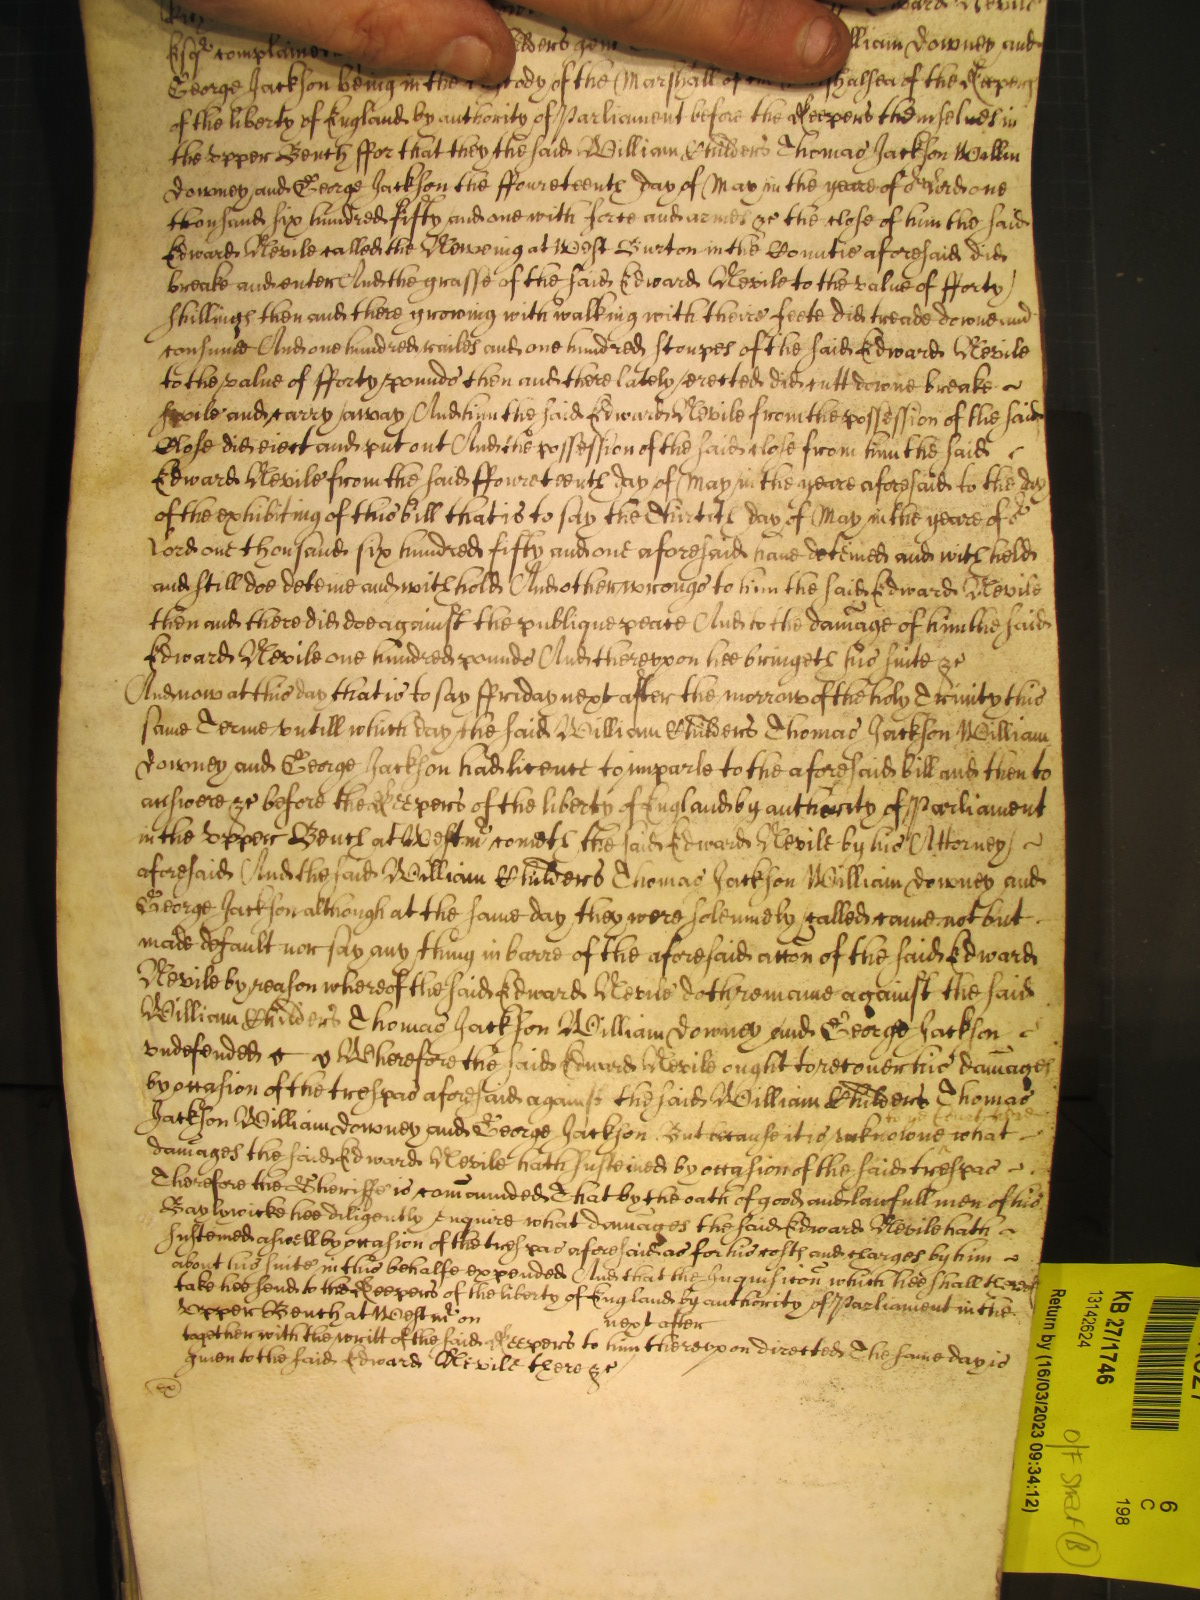 Edward Nevile
Esqr complaine lders gent lliam Downey and
George Jackson being in the Custody of the Marshall of the shalsea of the Keepers
of the liberty of England by authority of Parliament before the Keepers themselues in
the vpper Bench ffor that they the said William Childers Thomas Jackson Willm
Downey and George Jackson the ffoureteenth day of May in the yeare of or Lord one
thousand six hundred fifty and one with force and armes &c the close of him the said
Edward Nevile called the Neweing at West Burton in the Countie aforesaid did
breake and enter And the grasse of the said Edward Nevile to the value of fforty
shillings then and there growing with walking with theire feete did treade downe and
consume And one hundred railes and one hundred stoupes of the said Edward Nevile
to the value of fforty pounds then and there lately erected did cutt downe breake
spoile and carry away And him the said Edward Nevile from the possession of the said
Close did eiect and put out And the possession of the said close from him the said
Edward Nevile from the said ffoureteenth day of May in the yeare aforesaid to the day
of the exhibiting of this bill that is to say the Thirtith day of May in the yeare of or
Lord one thousand six hundred fifty and one aforesaid haue deteined and with held
and still doe deteine and with hold And other wrongs to him the said Edward Nevile
then and there did doe against the publique peace And to the damage of him the said
Edward Nevile one hundred pounds And therevpon hee bringeth his suite &c
And now at this day that is to say ffriday next after the morrow of the holy Trinity this
same Terme vntill which day the said William Childers Thomas Jackson William
Downey and George Jackson had licence to imparle to the aforesaid bill and then to
answere &c before the Keepers of the liberty of England by authority of Parliament
in the vpper Bench at Westmr cometh the said Edward Nevile by his Attorney
aforesaid And the said William Childers Thomas Jackson William Downey and
George Jackson although at the same day they were solemnely called came not but
made default nor say any thing in barre of the aforesaid accon of the said Edward
Nevile by reason whereof the said Edward Nevile doth remaine against the said
William Childers Thomas Jackson William Downey and George Jackson
vndefended Wherefore the said Edward Nevile ought to recouer his damages
by occasion of the trespas aforesaid against the said William Childers Thomas
Jackson William Downey and George Jackson But because it is vnknowne what
damages the said Edward Nevile hath susteined by occasion of the said trespas
Therefore the Sheriffe is commaunded That by the oath of good and lawfull men of his
Baylywicke hee diligently enquire what damages the said Edward Nevile hath
susteined aswell by occasion of the trespas aforesaid as for his costs and charges by him
about his suite in this behalfe expended And that the Inquisicon which hee shall thereof
take hee send to the Keepers of the liberty of England by authority of Parliament in the
vpper Bench at Westmr on next after
together with the writt of the said Keepers to him therevpon directed The same day is
giuen to the said Edward Nevile there &c
KB 27/1746
13142624
Return by (16/03/2023 09:34:12)
6
C
198
O/F